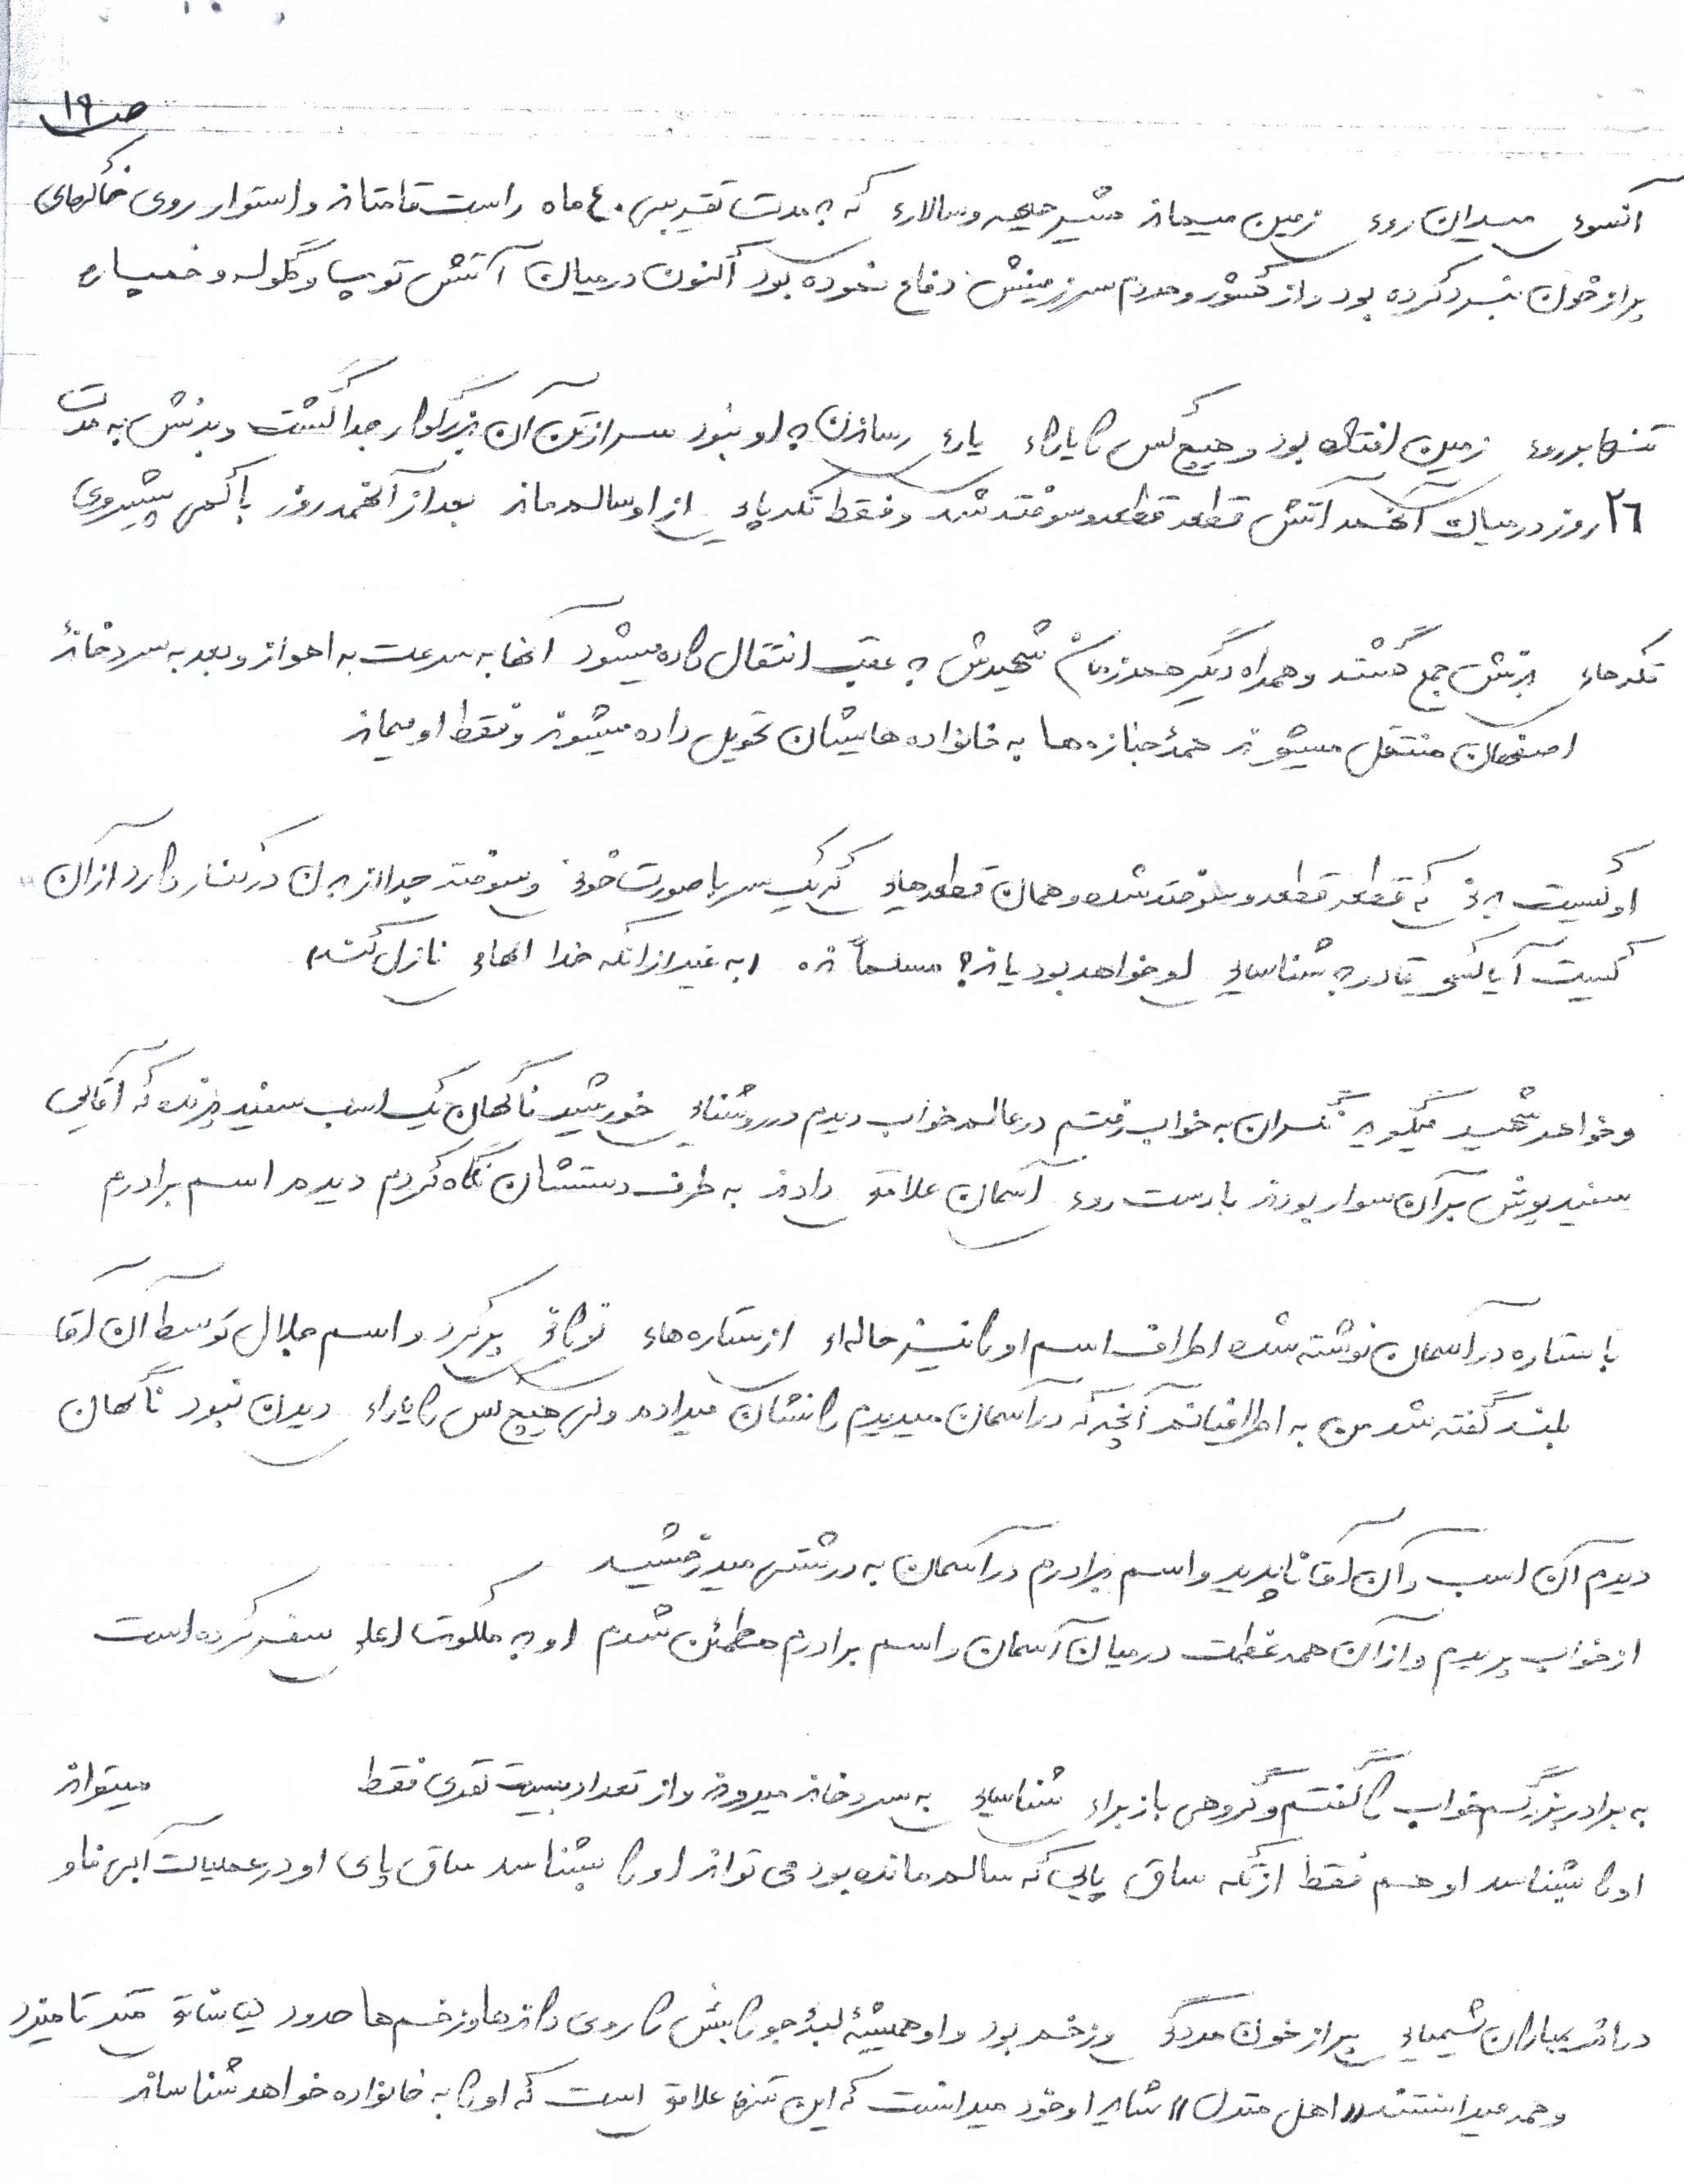 ص ۱۹
آنسوی میدان روی زمین میماند شیر جبهه و سالاری که به مدت تقریبی ۴۰ ماه راست قامتانه و استوار روی خاکهای
پر از خون نبرد کرده بود و از کشور و مردم سرزمینش دفاع نموده بود اکنون در میان آتش توپ و گلوله و خمپاره
تنها بر روی زمین افتاده بود و هیچ کس را یارای یاری رساندن به او نبود سر از تن آن بزرگوار جدا گشت و بدنش به مدت
۲۶ روز در میان آنهمه آتش قطعه قطعه و سوخته شد و فقط تکه پایی از او سالم ماند بعد از آنهمه روز با کمی پیشروی
تکه های بدنش جمع گشته و همراه دیگر همرزمان شهیدش به عقب انتقال داده میشود آنها به سرعت به اهواز و بعد به سردخانهٔ
اصفهان منتقل میشوند همهٔ جنازه ها به خانواده هایشان تحویل داده میشوند و فقط او میماند
او کیست بدنی که قطعه قطعه و سوخته شده و همان قطعه هایی که یک سر با صورت خونی و سوخته جدا از بدن در کنار دارد از آن
کیست آیا کسی قادر به شناسایی او خواهد بود یا نه؟ مسلماً نه (به غیر از آنکه خدا الهامی نازل کند)
و خواهر شهید میگوید نگران به خواب رفتم در عالم خواب دیدم در روشنایی خورشید ناگهان یک اسب سفید پرنده که آقایی
سفید پوش بر آن سوار بودند با دست روی آسمان علامتی دادند به طرف دستشان نگاه کردم دیدم اسم برادرم
با ستاره در آسمان نوشته شده اطراف اسم او را نیز هاله ای از ستاره های نورانی پر کرد و اسم جلال توسط آن آقا
بلند گفته شد من به اطرافیانم آنچه که در آسمان میدیدم را نشان میدادم ولی هیچ کس را یارای دیدن نبود ناگهان
دیدم آن اسب و آن آقا ناپدید و اسم برادرم در آسمان به درشتی میدرخشید
از خواب پریدم و از آن همه عظمت در میان آسمان و اسم برادرم مطمئن شدم او به ملکوت اعلی سفر کرده است
به برادر بزرگم خواب را گفتم و گروهی باز برای شناسایی به سردخانه میروند و از تعداد بیست نفری فقط میتواند
او را شناسد او هم فقط از تکه ساق پایی که سالم مانده بود می تواند او را بشناسد ساق پای او در عملیات آبی خاو
در اثر بمباران شیمیایی پر از خون مردگی و زخم بود و او همیشه لبهٔ جورابش را روی دانه ها و زخم ها حدود سی سانتی متر تا میزد
و همه میدانستند «اهل منزل» شاید او خود میدانست که این تنها علامتی است که او را به خانواده خواهد شناساند